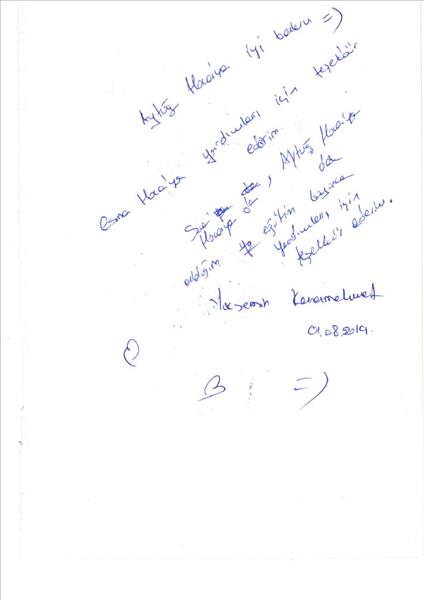 Aytüğ Hocaya iyi bakın =)
Esma Hocaya yardımları için teşekkür
ederim.
Aytüğ Hocaya
Hocaya da da
aldığım eğitim boyunca
yardımları için
teşekkür ederim.
Yasemin Karamehmet
01.08.2019.
=)